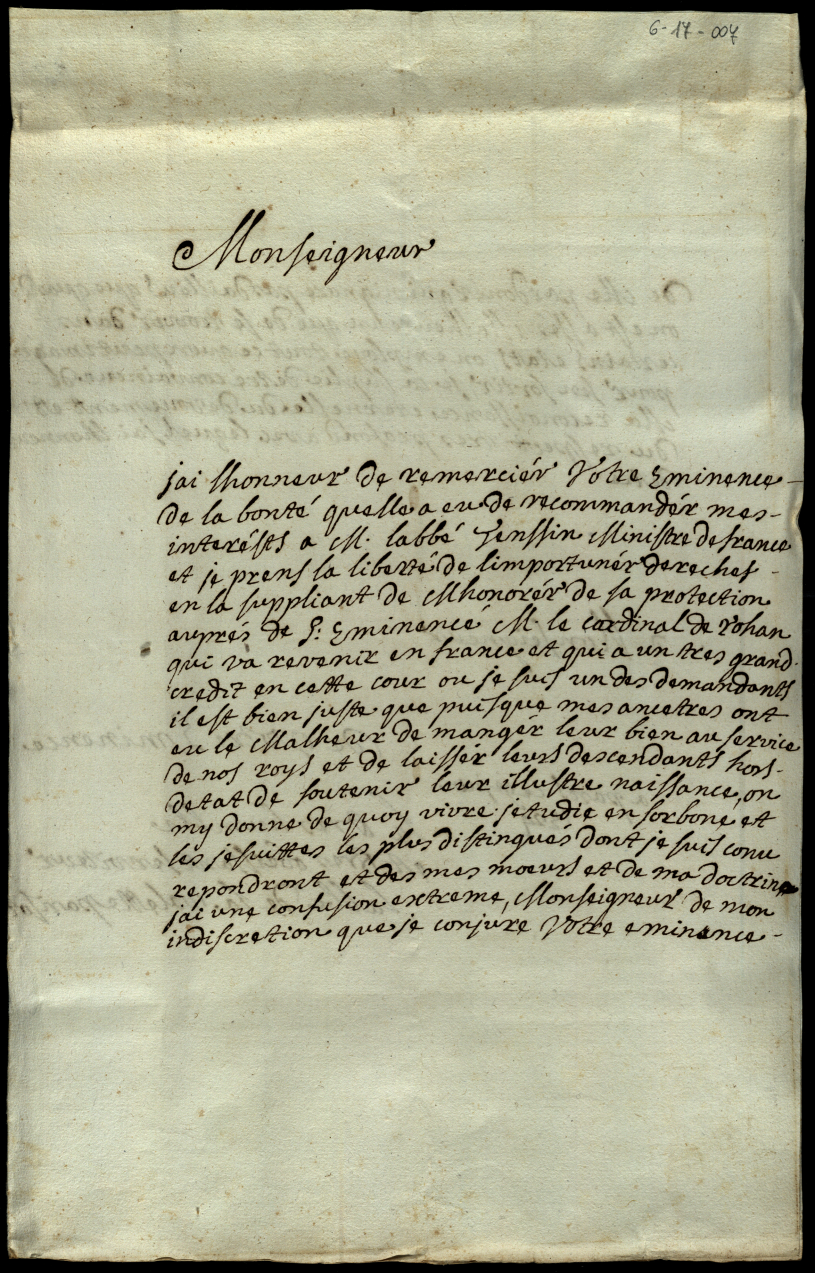 6-17-007
Monseigneur
jai lhonneur de remerciér Votre Eminence
de la bonté quelle a eu de recommandér mes
interésts a M. labbé Tenssin Ministre de france
et je prens la liberté de limportunér derechef
en la suppliant de Mhonorér de sa protection
auprés de S. Eminence M. le cardinal de rohan
qui va revenir en france et qui a un tres grand
credit en cette cour ou je suis un des demandants
il est bien juste que puisque mes ancetres ont
eu le Malheur de mangér leur bien au service
de nos roys et de laissér leurs descendants hors
detat de soutenir leur illustre naissance, on
my donne de quoy vivre. jetudie en sorbone et
les jesuittes les plus distingués dont je suis conu
repondront et des mes moeurs et de ma doctrine
jai une confusion extreme, Monseigneur de mon
indiscretion que je conjure Votre eminence